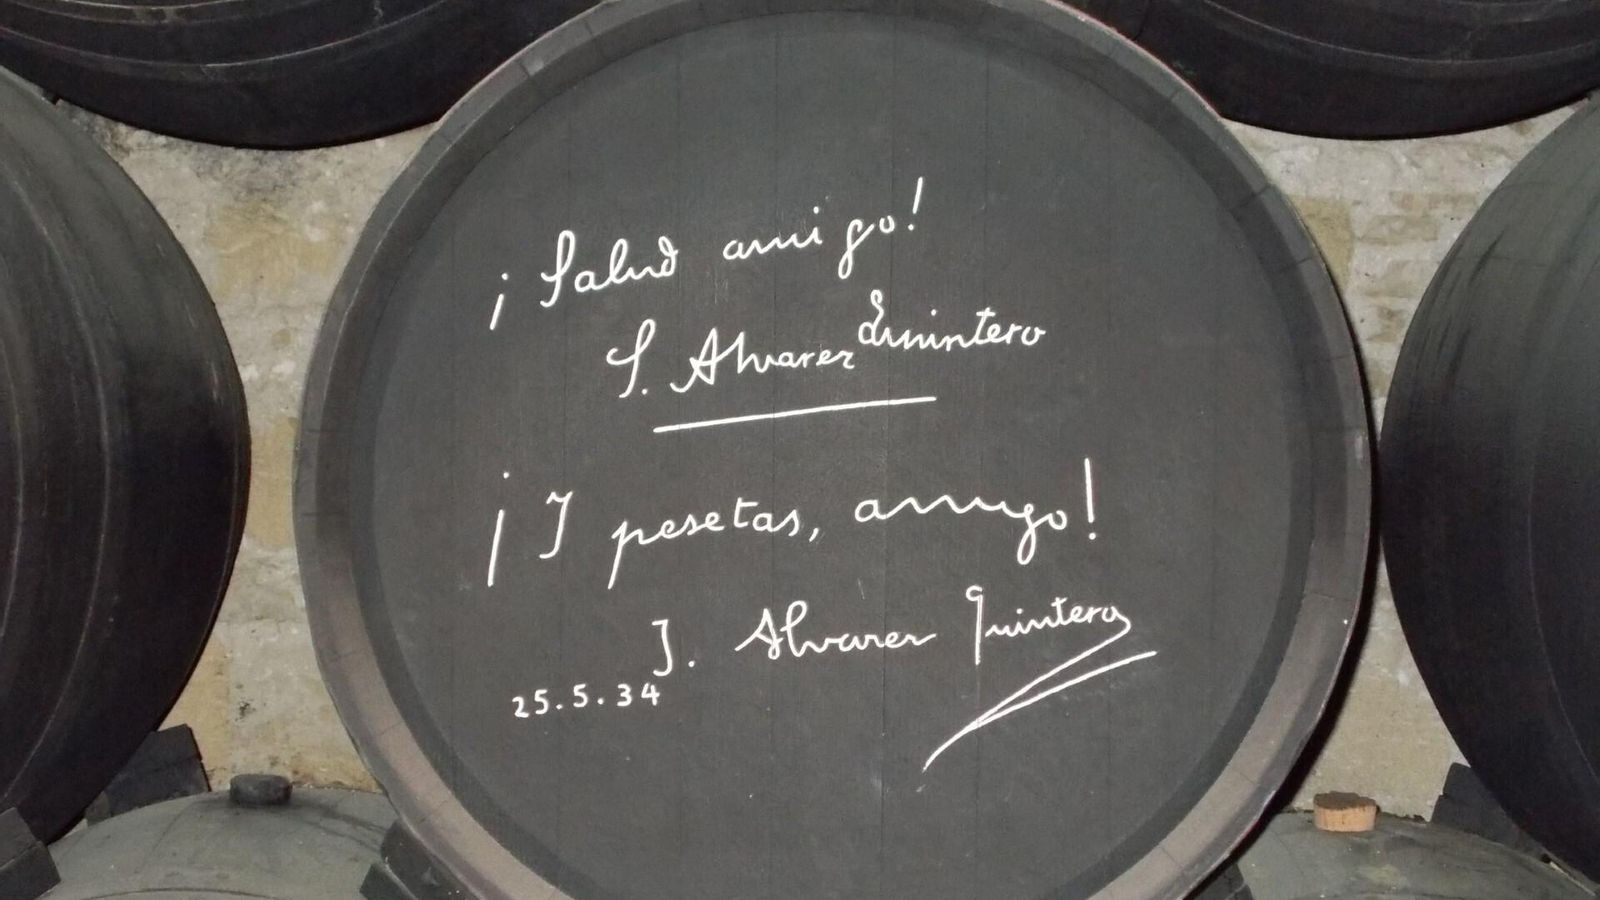 ¡Salud amigo!
S. Alvarez Quintero
¡Y pesetas, amigo!
J. Alvarez Quintero
25.5.34